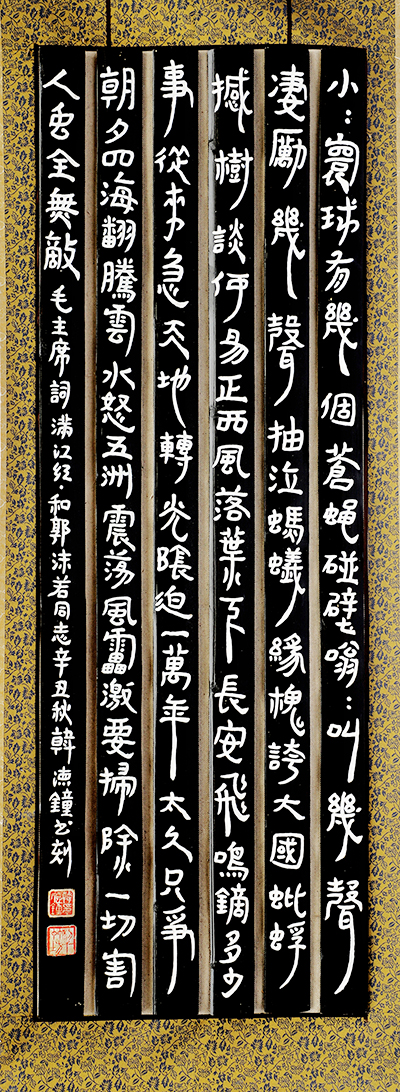 小：寰球有幾個蒼蝇碰壁嗡：叫幾聲
凄勵幾聲抽泣螞蟻緣槐誇大國蚍蜉
撼樹談何易正西風落葉下長安飛鳴鏑多少
事從來急天地轉光陰迫一萬年太久只爭
朝夕四海翻騰雲水怒五洲震荡風靁激要掃除一切割
人虫全無敵 毛主席詞满江红·和郭沫若同志辛丑秋韓鐘书刻